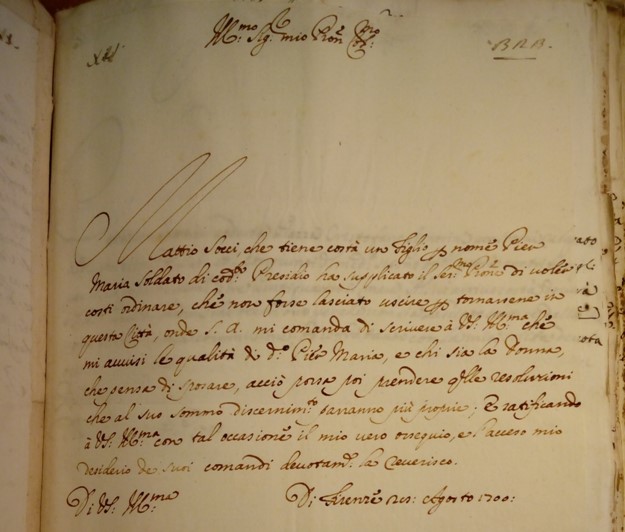 Ill:mo Sig: mio Pron Col:mo
Mattio Socci, che tiene costà un figlio p nome Pier
Maria Soldato di cod:o Presidio ha supplicato il Ser:mo Prone di voler
costì ordinare, che non fosse lasciato uscire p tornarsene in
questa Città, onde S. A. mi comanda di scrivere à VS. Ill:ma che
mi avvisi le qualità di d:o Pier Maria, e chi sia la Donna,
che pensa di sposare, acciò possa poi prendere qlle resoluzioni
che al suo sommo discernim:to saranno più proprie; E ratificando
à VS. Ill:ma con tal occasione il mio vero ossequio, e l'acceso mio
desiderio de suoi comandi devotam:te la reverisco.
Di VS. Ill:ma
Di Firenze Agosto 1700: